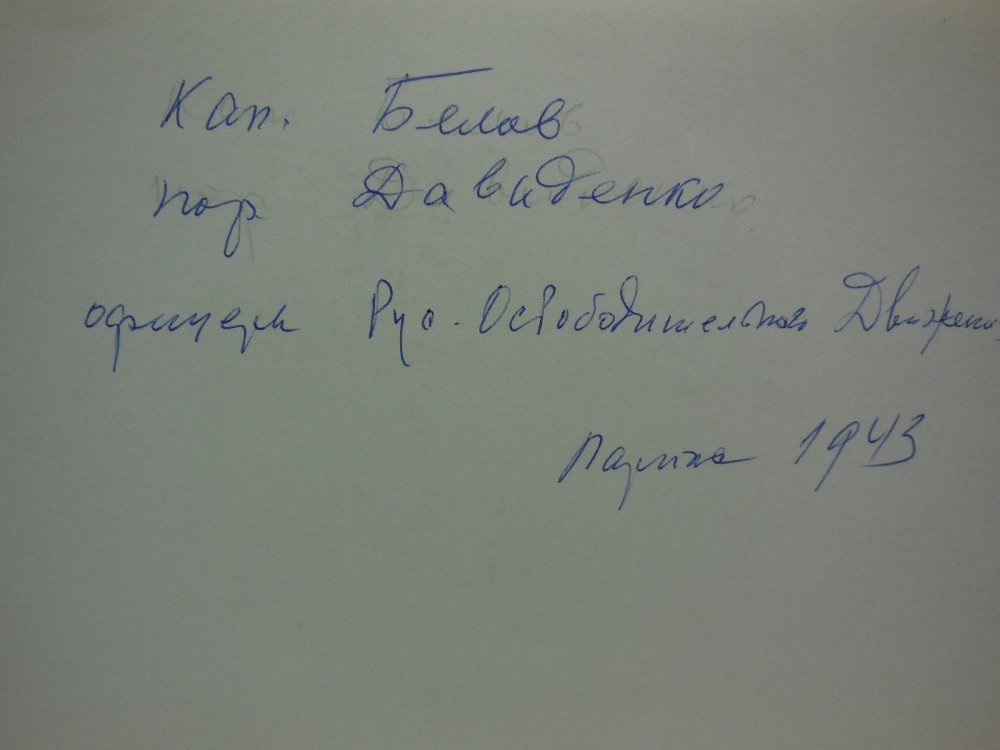 Кап. Белов
пор Давиденко
офицеры Рус. Освободительного Движения
Париж 1943